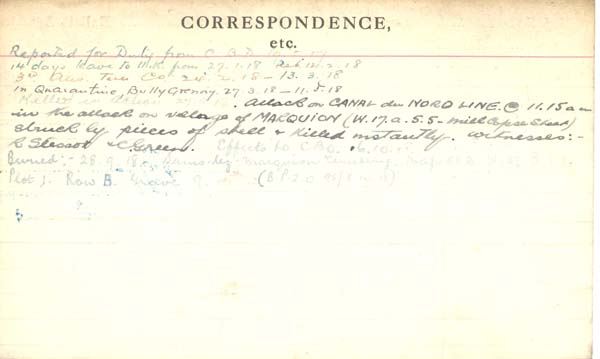 CORRESPONDENCE,
etc.
Reported for Duty from C.B.D.
14 days leave to U.K. from 27.1.18 Ret 2.18
3rd Aus. Tun Co. 2.18 - 13.3.18
in Quarantine, Bully Grenay. 27.3.18 - 11.5.18
Killed in Action 27 . attack on CANAL du NORD LINE. @ 11.15 am
in the attack on village of MARQUION (W.17.a.5.5 - Mill Copse Sheet)
struck by pieces of shell & killed instantly. witnesses:-
Slessor & C Green. Effects to CBO. 6.10.18
Buried:- 28.9.18
Plot 1. Row B. Grave 9.